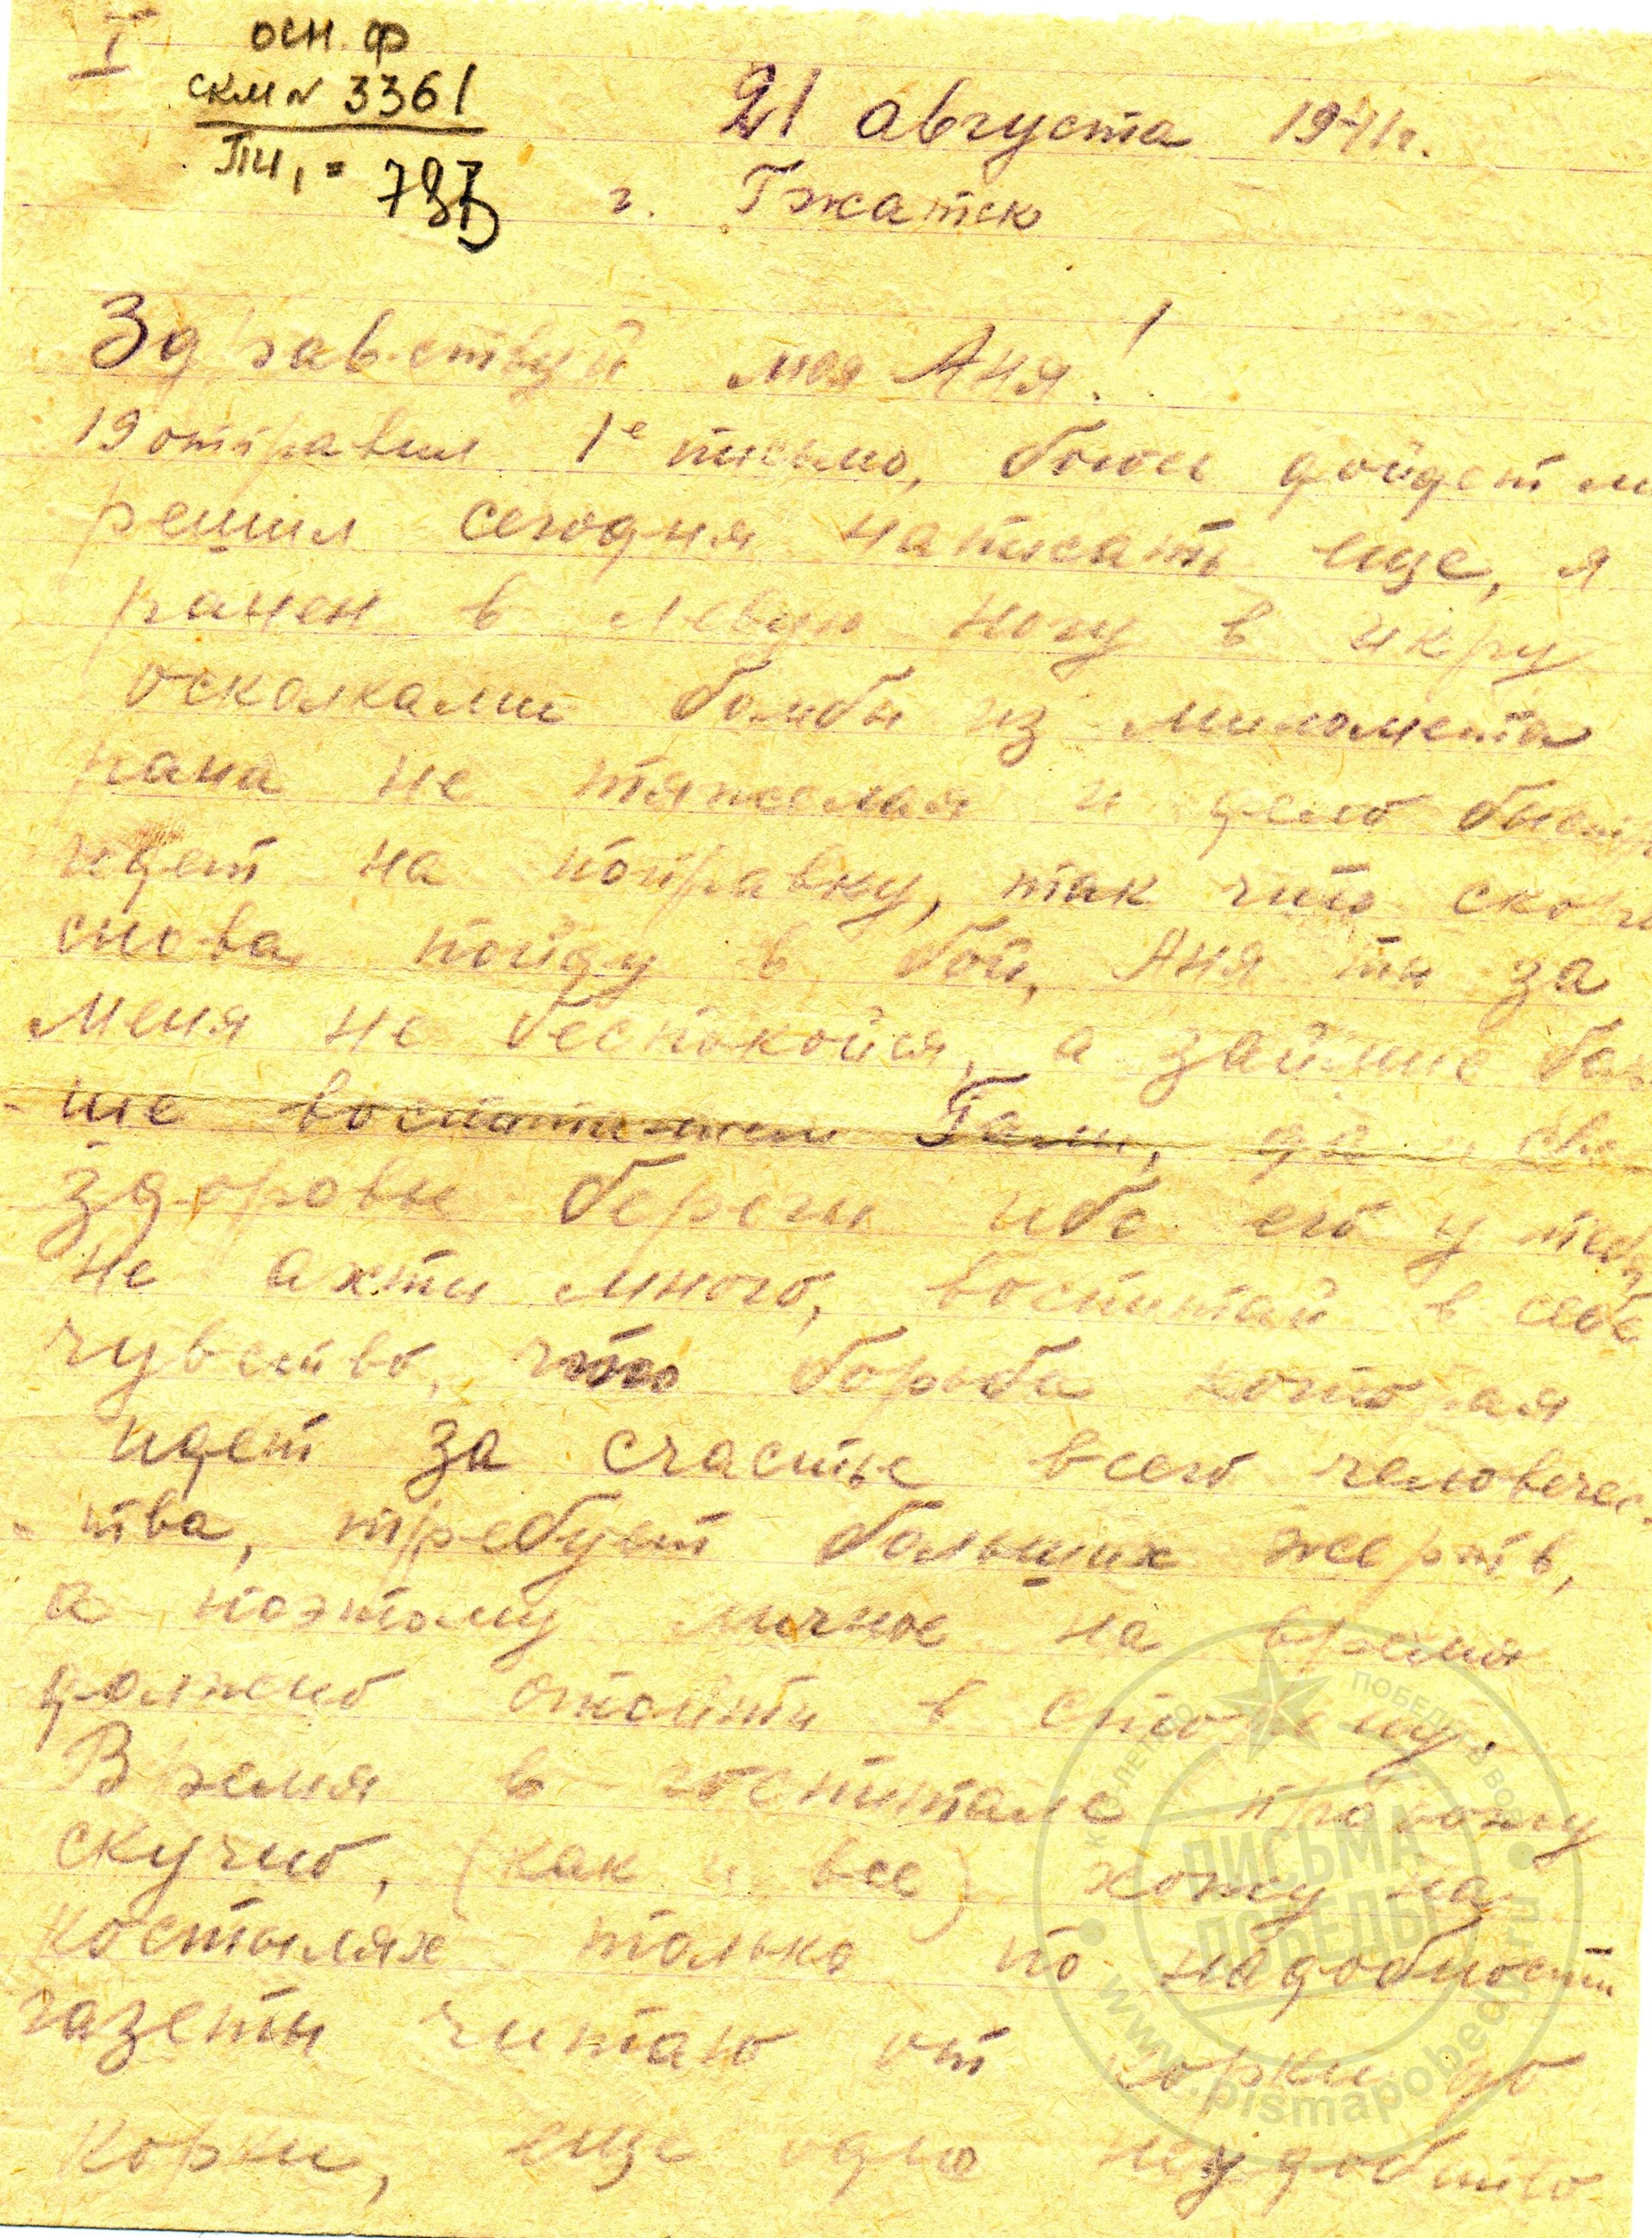 I
осн. ф
скм № 3361
ПИ, =
21 августа 1941г.
г. Гжатск
Здравствуй моя Аня!
19 отправил 1е письмо, боюсь дойдет ли
решил сегодня написать еще, я
ранен в левую ногу в икру
осколками бомбы из миномета
рана не тяжелая и дело быстр
идет на поправку, так что скоро
снова пойду в бой, Аня ты за
меня не беспокойся, а займись боль
ше воспитанием Гали, да и свое
здоровье береги ибо его у тебя
не ахти много, воспитай в себе
чувство, что борьба которая
идет за счастье всего человечес-
тва, требует больших жертв,
а поэтому личное на время
должно отойти в сторону.
Время в госпитале провожу
скучно, (как и все) хожу на
костылях только по надобности
газеты читаю от корки до
корки, еще одно неудобство
К 70-ЛЕТИЮ ПОБЕДЫ В ВОВ
ПИСЬМА
ПОБЕДЫ
www.pismapobedy.ru